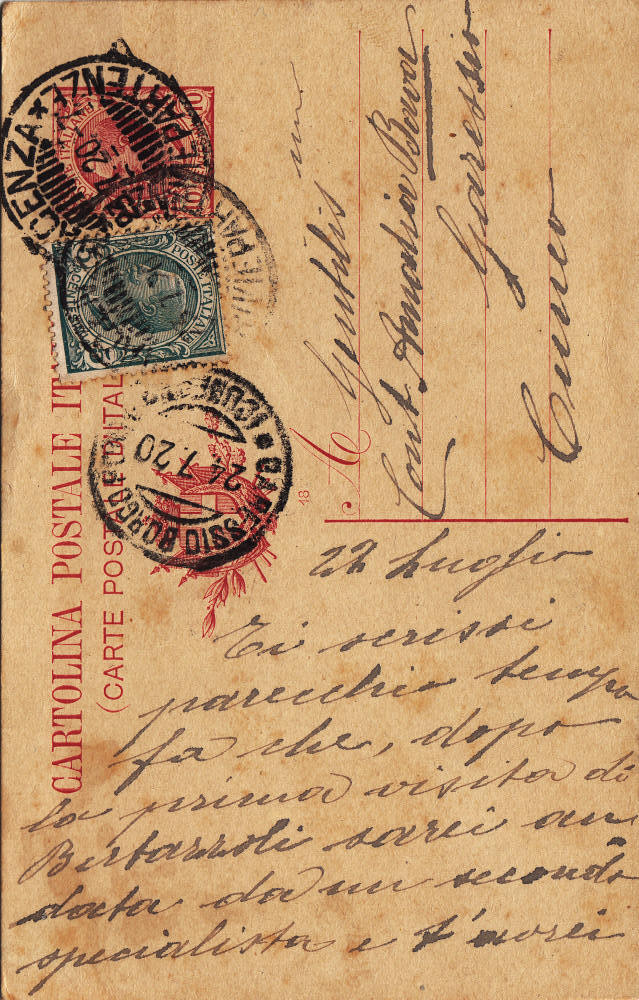 CARTOLINA POSTALE IT
(CARTE POST D'ITAL
POSTE ITALIANE
CENZA * PARTENZE
20
10
GARESSIO BORGO
24.7.20
18
A Gentilis ma
Cont. Amalia Bovea
Garessio
Cuneo
22 Luglio
Ti scrissi
parecchio tempo
fa che, dopo
la prima visita di
Bertazzoli sarei an
data da un secondo
specialista e t'avrei